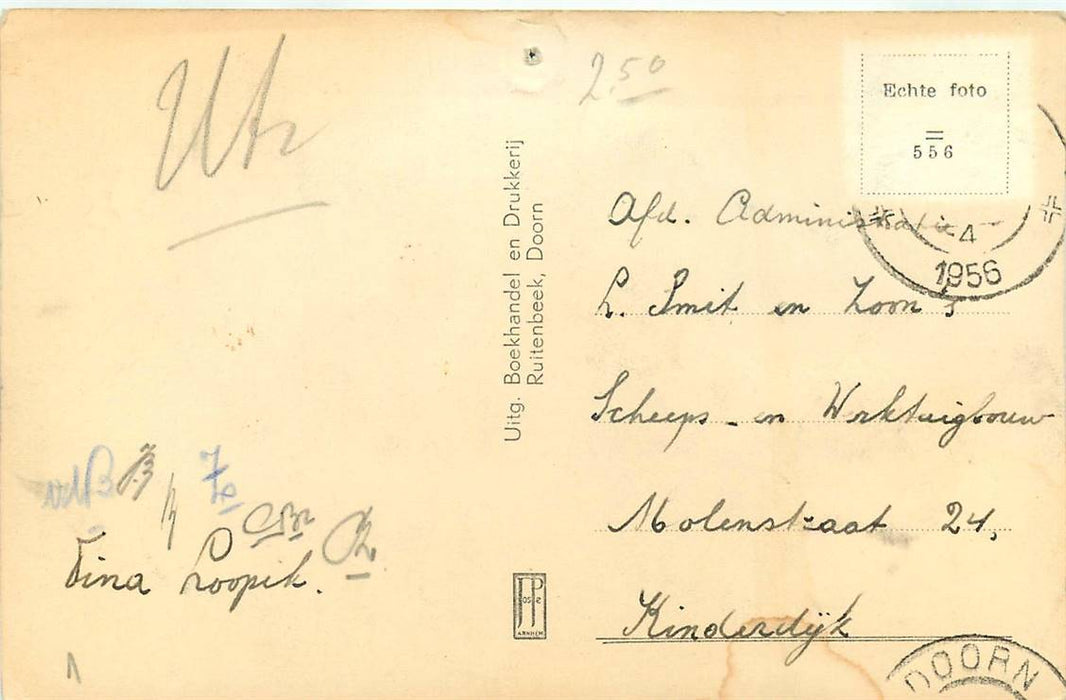 Utr
2.50
Echte foto
556
4
1956
Uitg. Boekhandel en Drukkerij
Ruitenbeek, Doorn
Afd. Administratie
L. Smit en Zoon's
Scheeps- en Werktuigbouw
Molenstraat 24,
Kinderdijk
vdB
Tina Loopik.
JP
ARNHEM
DOORN